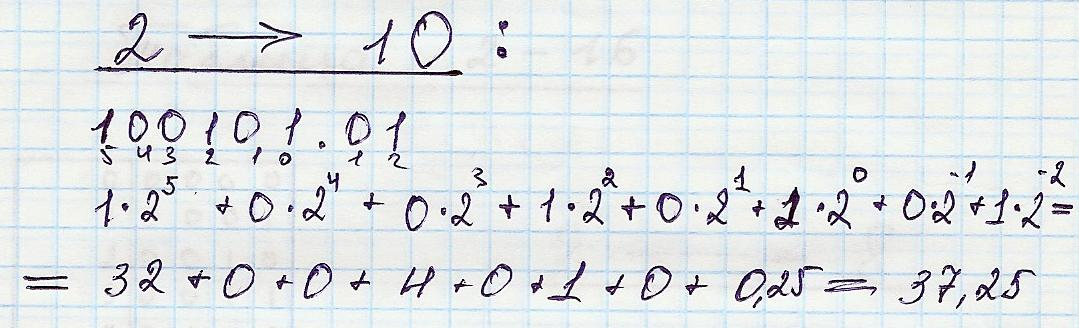 2 → 10 :
100101.01
5 4 3 2 1 0 1 2
1·2⁵ + 0·2⁴ + 0·2³ + 1·2² + 0·2¹ + 1·2⁰ + 0·2⁻¹ + 1·2⁻² =
= 32 + 0 + 0 + 4 + 0 + 1 + 0 + 0,25 = 37,25